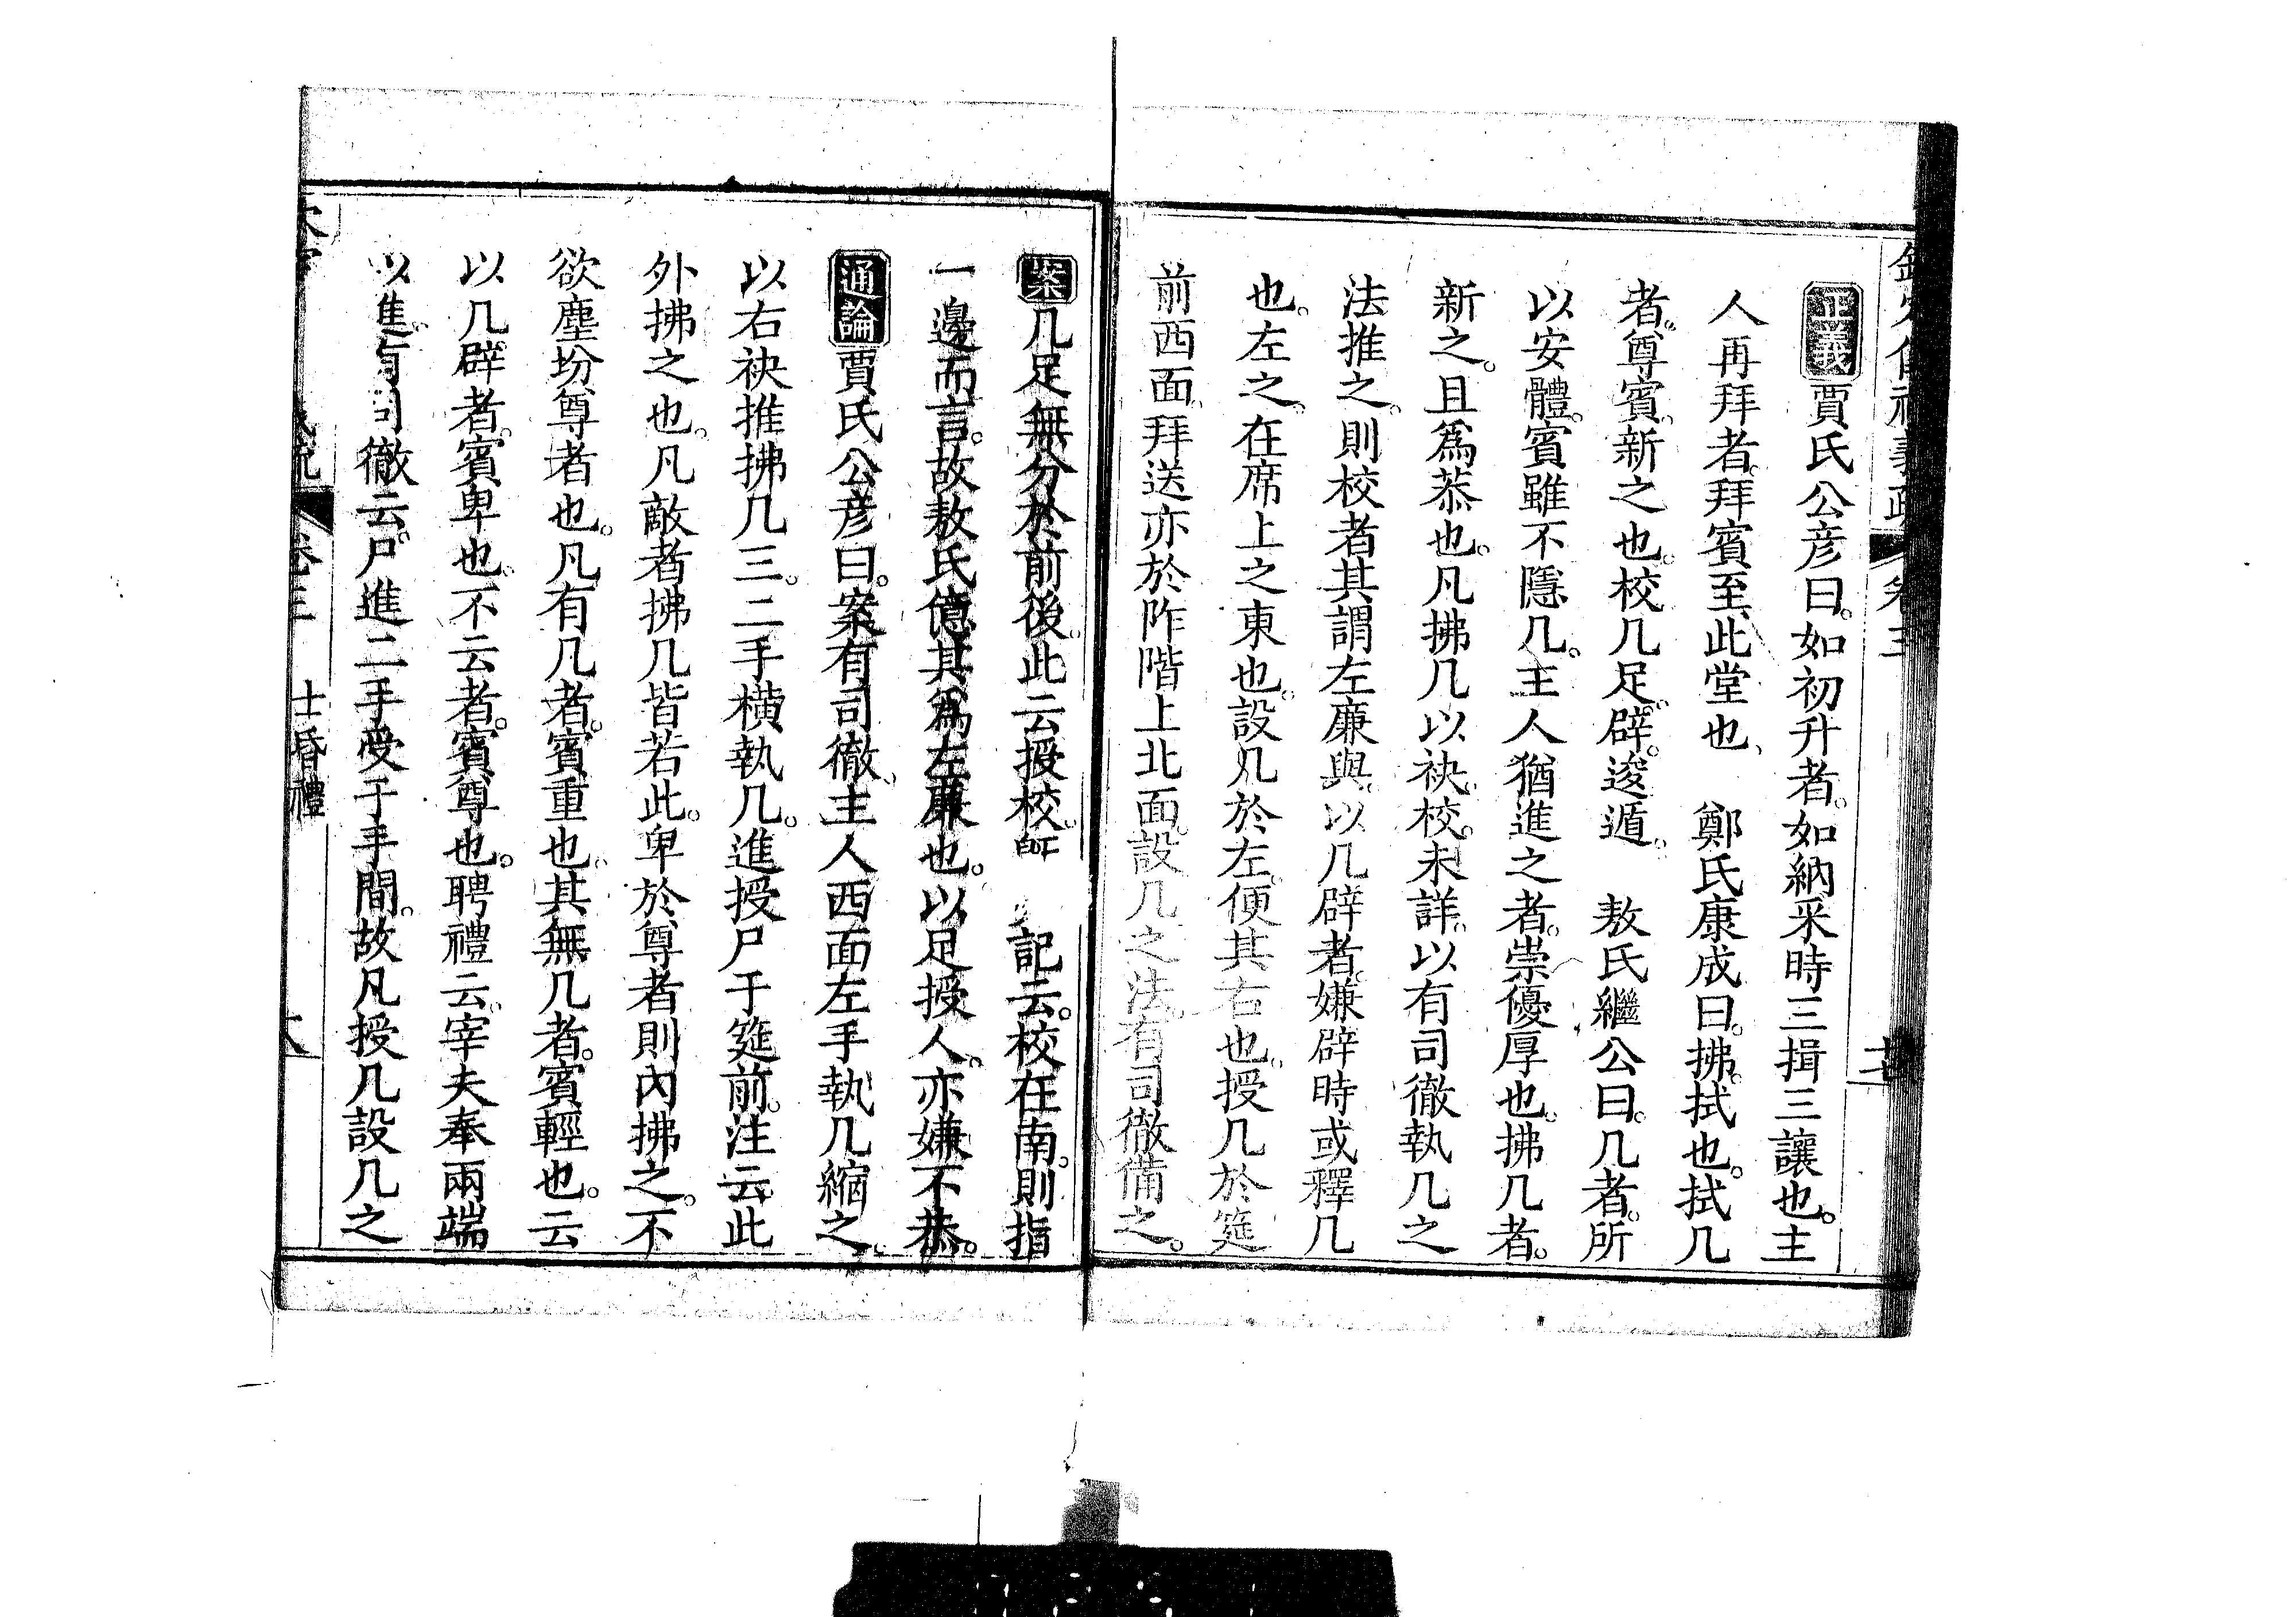 正義賈氏公彦曰。如初升者。如納采時三揖三讓也。主
人再拜者。拜賓至此堂也、　鄭氏康成曰。拂。拭也。拭几
者。尊賓。新之也。校几足。辟。逡遁。　敖氏繼公曰。几者。所
以安體。賓雖不隱几。主人猶進之者。崇優厚也。拂几者。
新之。且爲恭也。凡拂几以袂。校。未詳。以有司徹執几之
法推之。則校者其謂左廉與。以几辟者。嫌辟時或釋几
也。左之。在席上之東也。設几於左。便其右也。授几於筵
前西面。拜送亦於阼階上北面。設几之法。有司徹備之。
案几足無分於前後。此云授校。 記云。校在南。則指
一邊而言。故敖氏億其爲左廉也。以足授人。亦嫌不恭。
通論賈氏公彦曰。案有司徹、主人西面左手執几縮之。
以右袂推拂几三。二手横執几。進授尸于筵前。注云。此
外拂之也。凡敵者拂几皆若此。卑於尊者則內拂之。不
欲塵坋尊者也。凡有几者。賓重也。其無几者。賓輕也。云
以几辟者。賓卑也。不云者。賓尊也。聘禮云。宰夫奉兩端
以進。有司徹云。尸進二手受于手間。故凡授几設几之
卷三　士昏禮